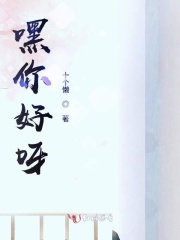 嘿你好呀
十个懒◎著